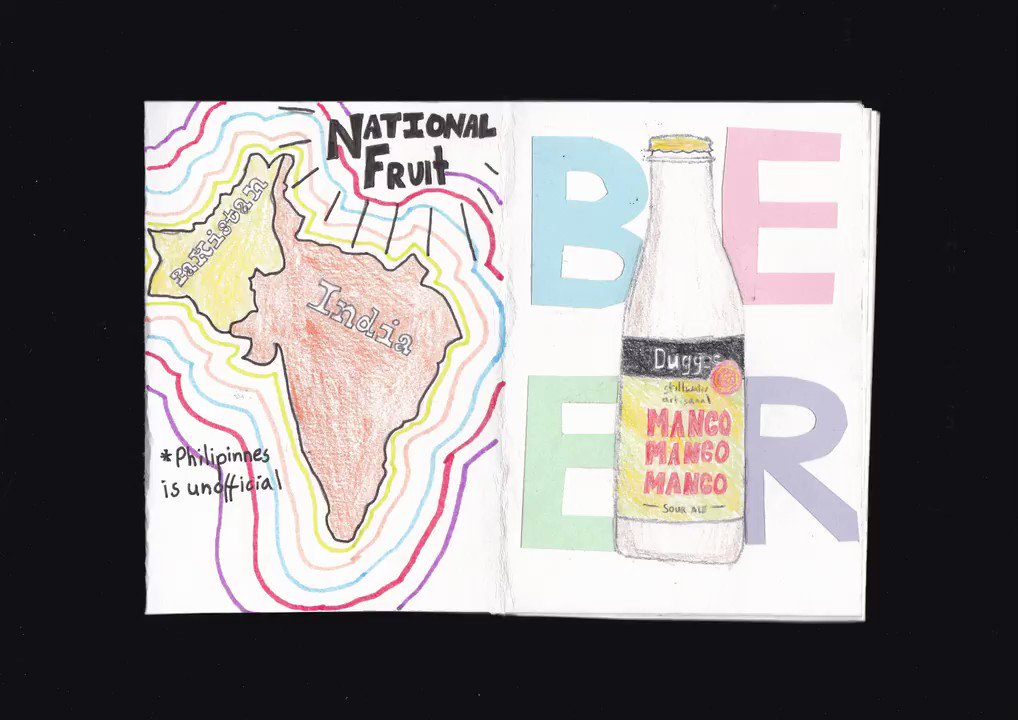 NATIONAL
FRUIT
Pakistan
India
*Philipinnes
is unofficial
BE
ER
Dugges
stillwater
artisanal
MANGO
MANGO
MANGO
SOUR ALE